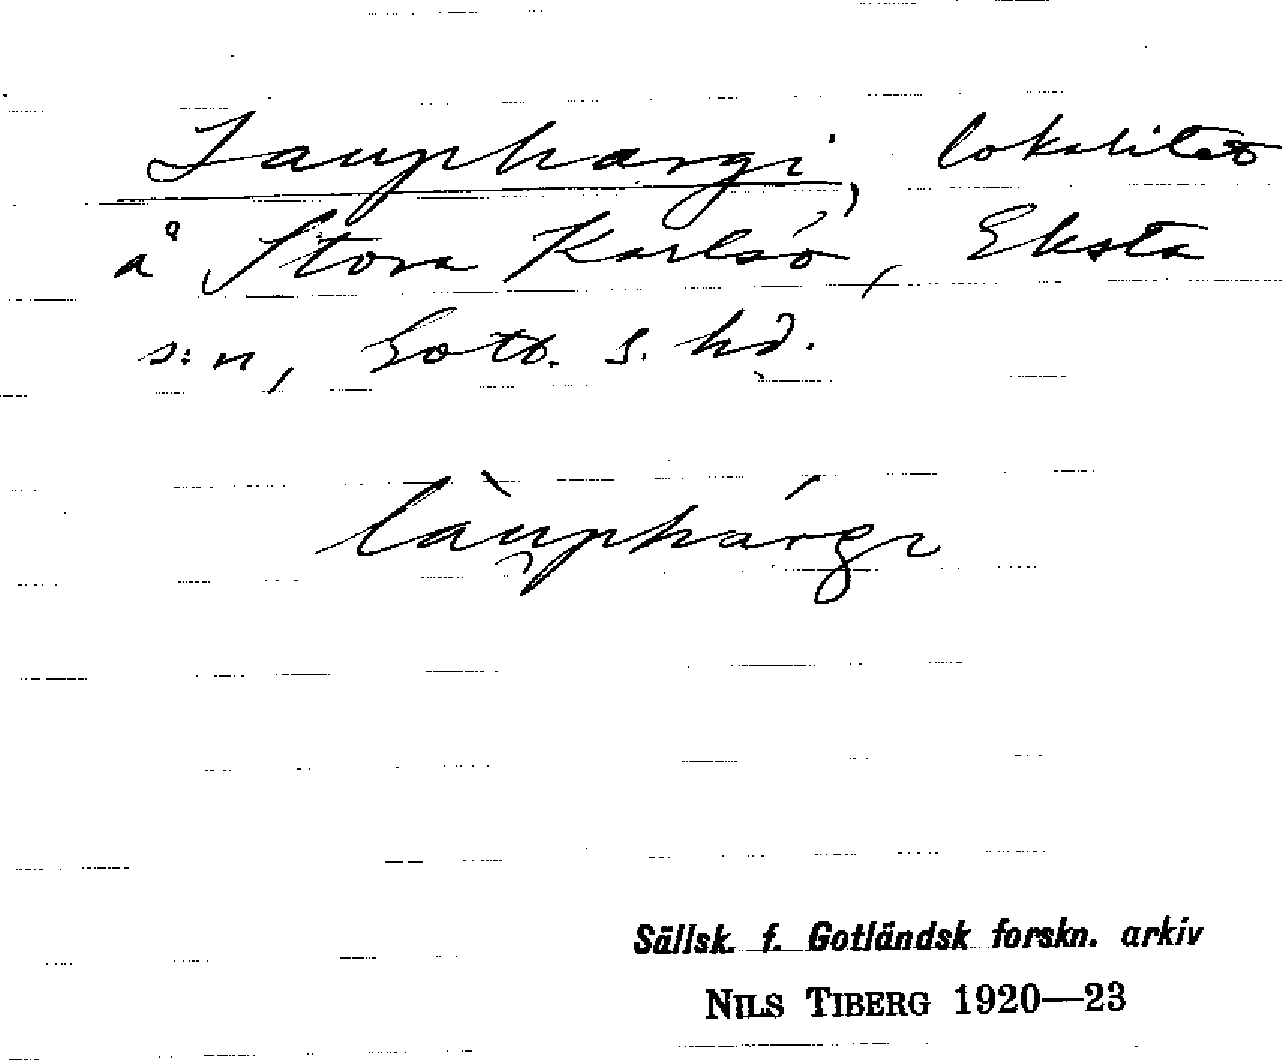 Lauphargi, lokalitet
å Stora Karlsö, Eksta
s:n, Gotl. S. hd.
làu̯phárgi
Sällsk. f. Gotländsk forskn. arkiv
NILS TIBERG 1920—23